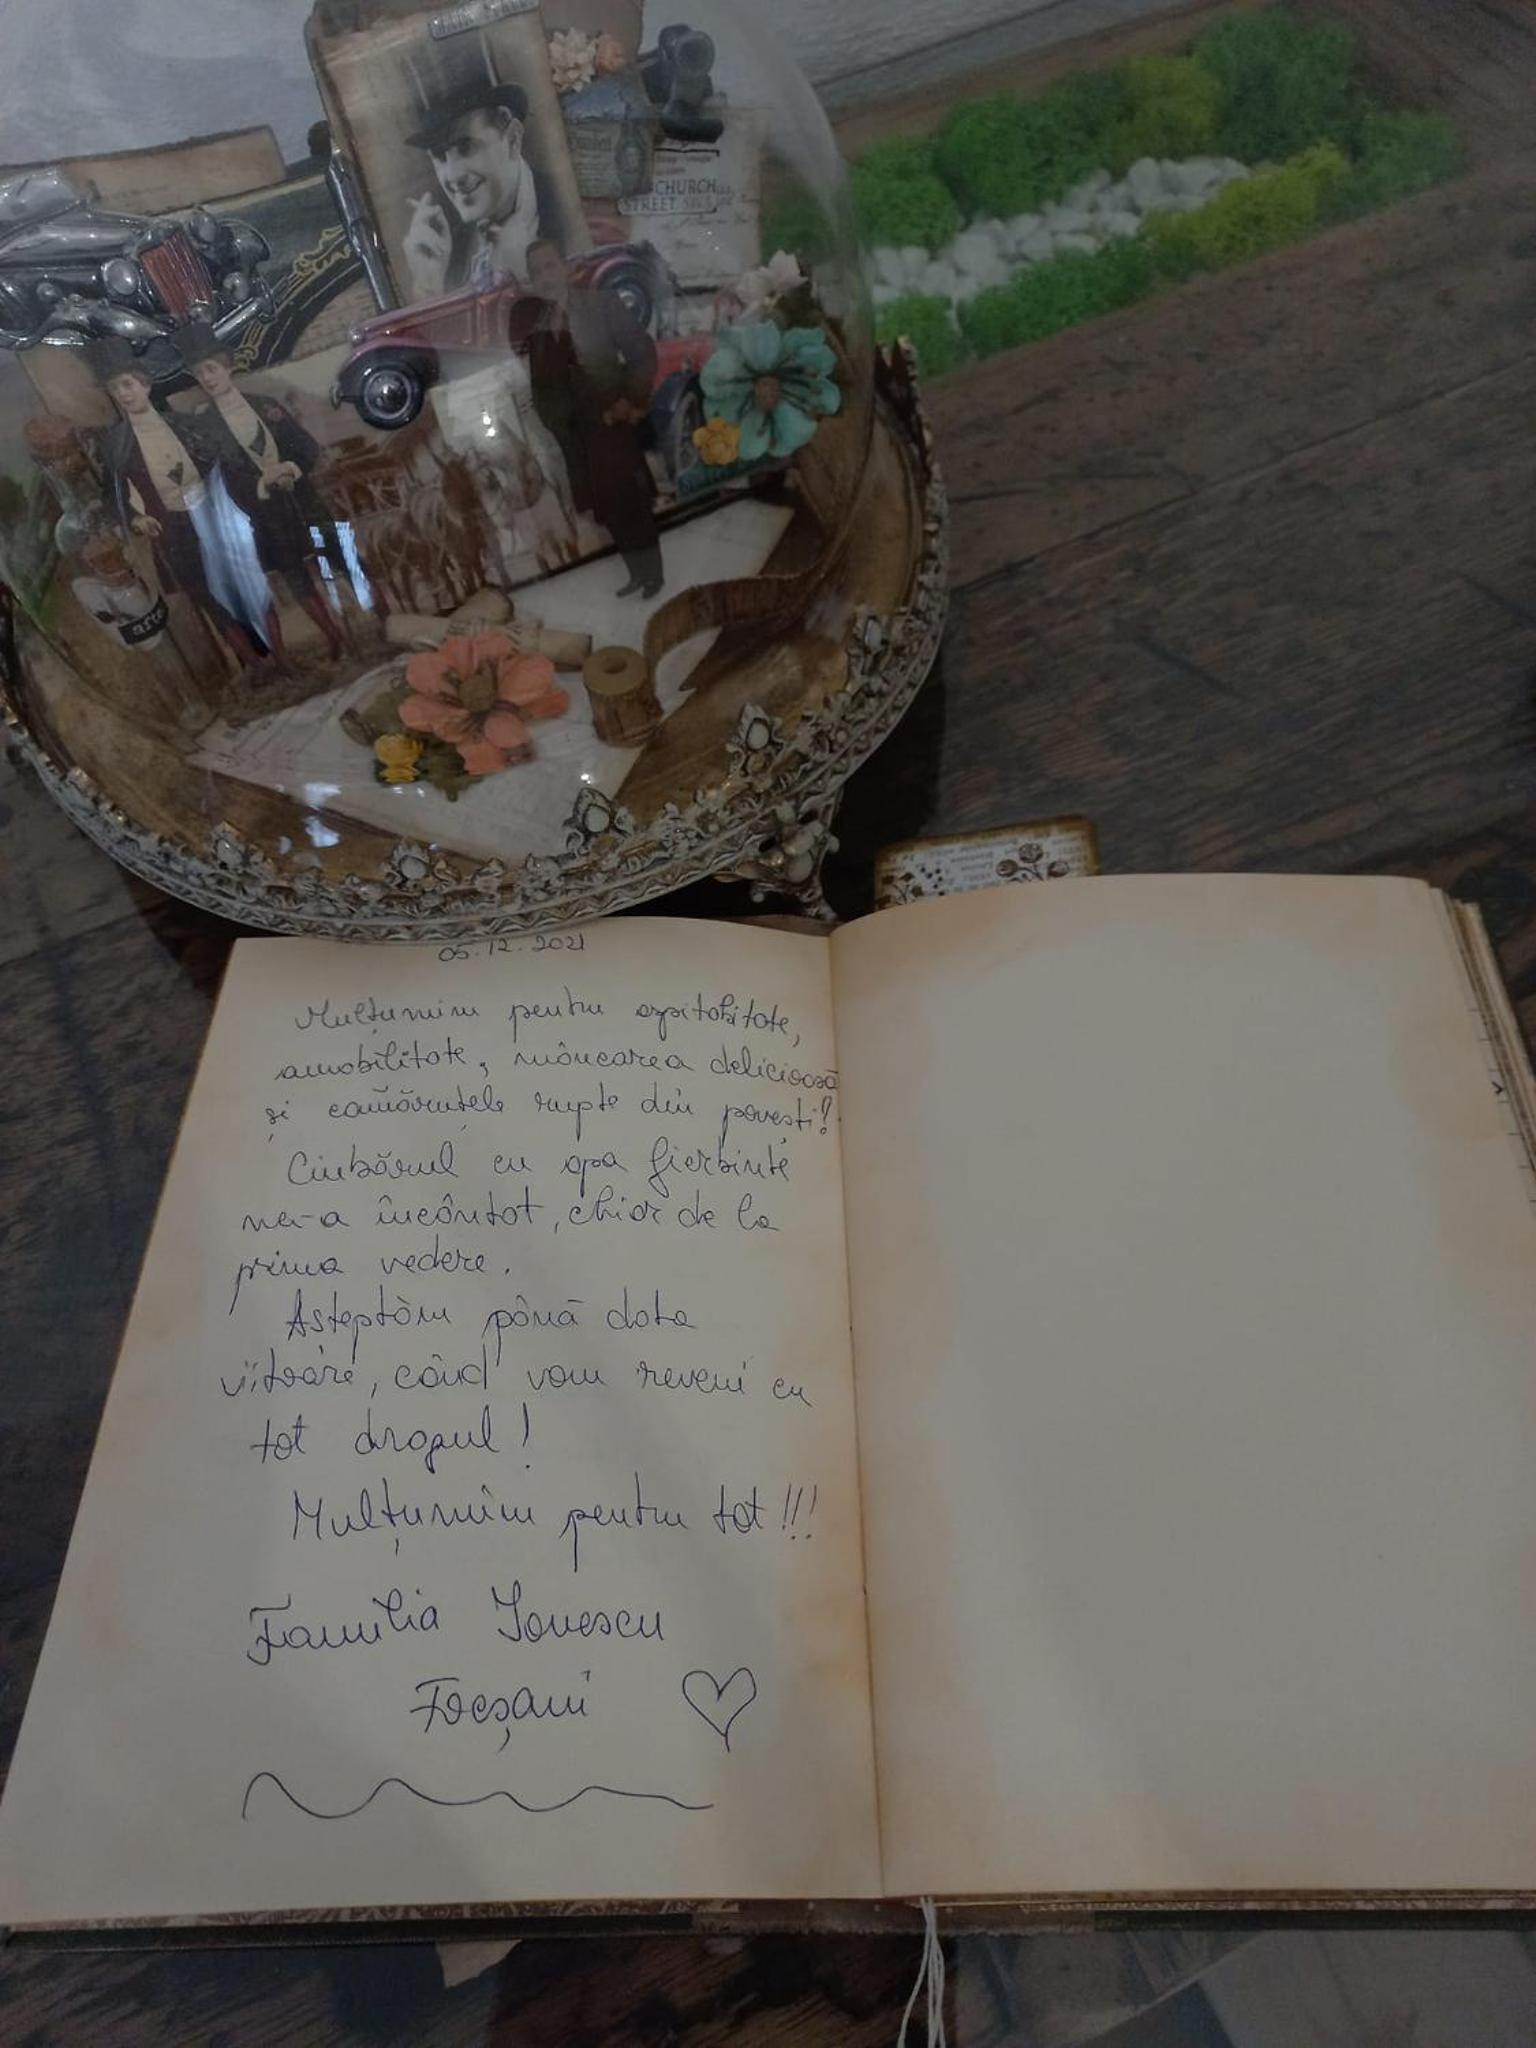 CHURCH
STREET
05.12.2021
Mulțumim pentru ospitalitate,
amabilitate, mâncarea delicioasă
și camăruțele rupte din povești!
Ciubărul cu apa fierbinte
ne-a încântat, chiar de la
prima vedere.
Așteptăm până data
viitoare, când vom reveni cu
tot dragul!
Mulțumim pentru tot!!!
Familia Ionescu
Focșani